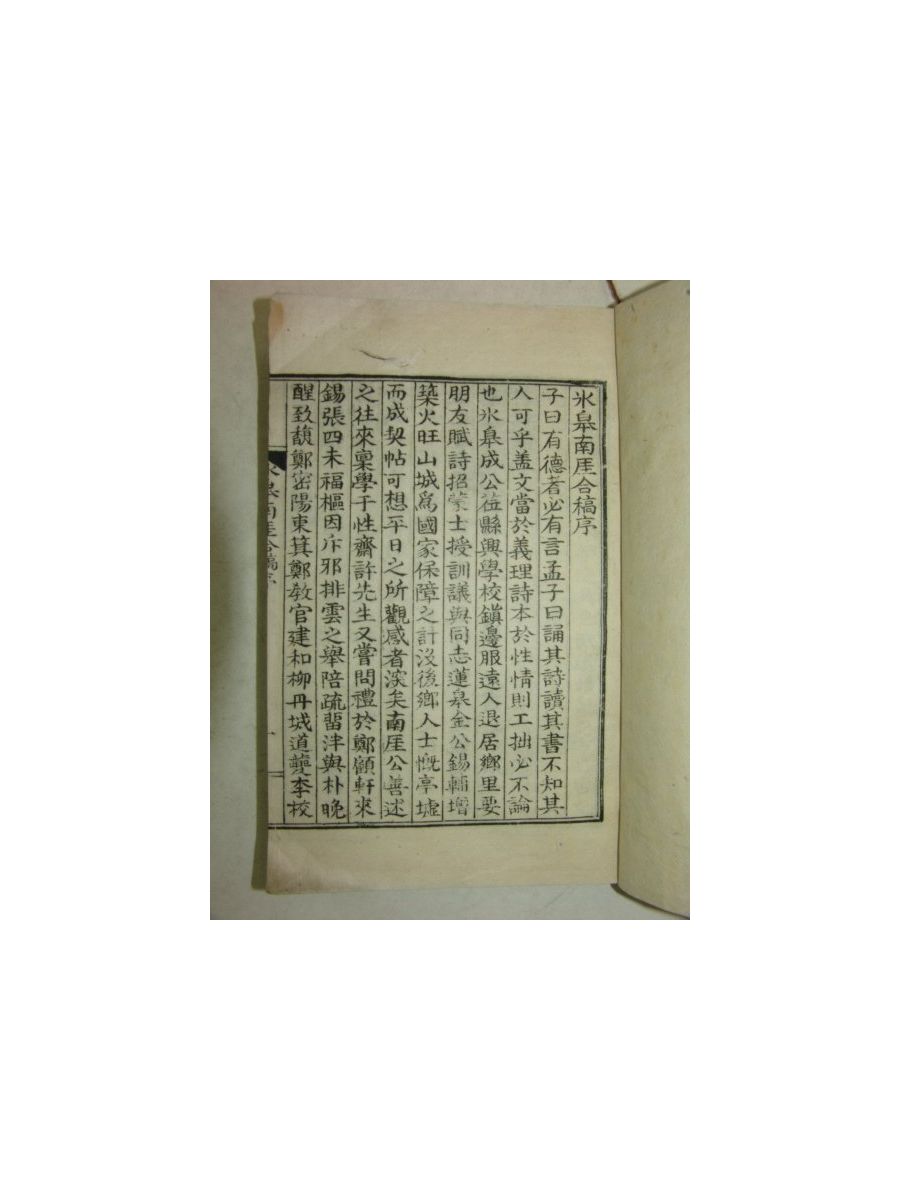 氷皐南厓合稿序
子曰有德者必有言孟子曰誦其詩讀其書不知其
人可乎盖文當於義理詩本於性情則工拙必不論
也氷皐成公莅縣興學校鎭邊服遠人退居鄕里要
朋友賦詩招蒙士授訓議與同志蓮皐金公錫輔增
築火旺山城爲國家保障之計沒後鄕人士慨亭墟
而成契帖可想平日之所觀感者深矣南厓公善述
之往來稟學于性齋許先生又嘗問禮於鄭顧軒來
錫張四未福樞因斥邪排雲之舉陪疏留泮與朴晚
醒致馥鄭密陽東箕鄭敎官建和柳丹城道夔李校
氷皐南厓合稿序
一